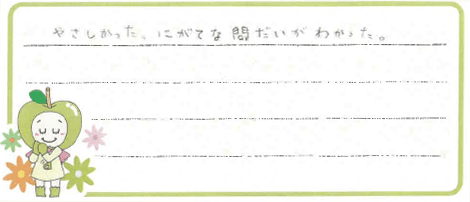 やさしかった。にがてな問だいがわかった。